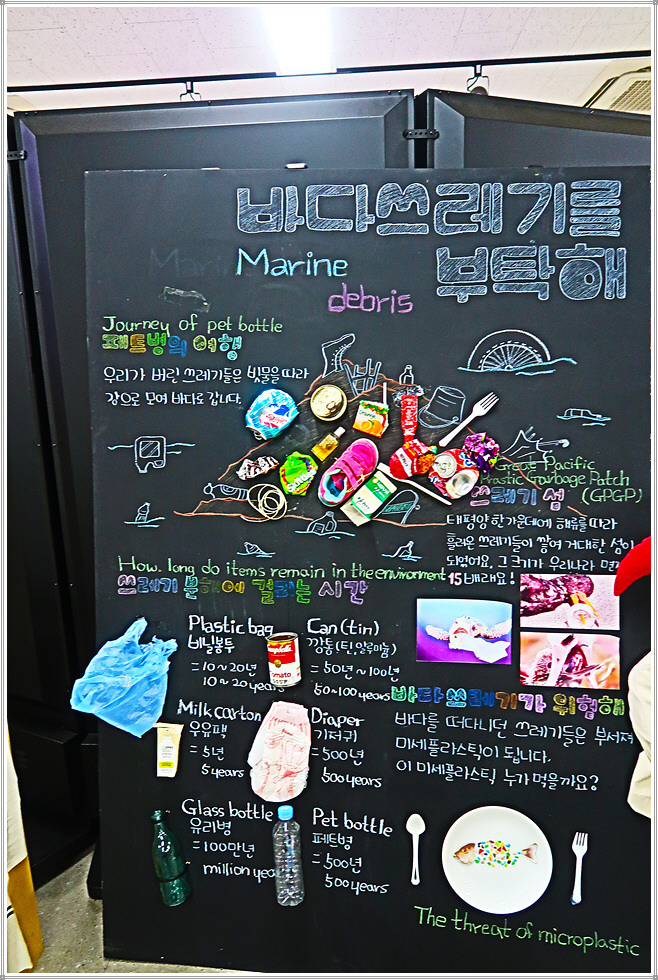 바다쓰레기를
부탁해
Marine
debris
Journey of pet bottle
페트병의 여행
우리가 버린 쓰레기들은 빗물을 따라
강으로 모여 바다로 갑니다.
Great Pacific
Plastic Garbage Patch
쓰레기 섬 (GPGP)
태평양 한가운데에 해류를 따라
흘러온 쓰레기들이 쌓여 거대한 섬이
되었어요. 그 크기가 우리나라 면적
15배래요!
How long do items remain in the environment
쓰레기 분해에 걸리는 시간
Plastic bag
비닐봉투
= 10~20년
10~20 years
Can (tin)
깡통(틴, 알루미늄)
= 50년~100년
50~100 years
Campbell's
tomato
Milk carton
우유팩
= 5년
5 years
Diaper
기저귀
= 500년
500 years
Glass bottle
유리병
= 100만년
million
Pet bottle
페트병
= 500년
500 years
바다쓰레기가 위험해
바다를 떠다니던 쓰레기들은 부서져
미세플라스틱이 됩니다.
이 미세플라스틱 누가 먹을까요?
The threat of microplastic